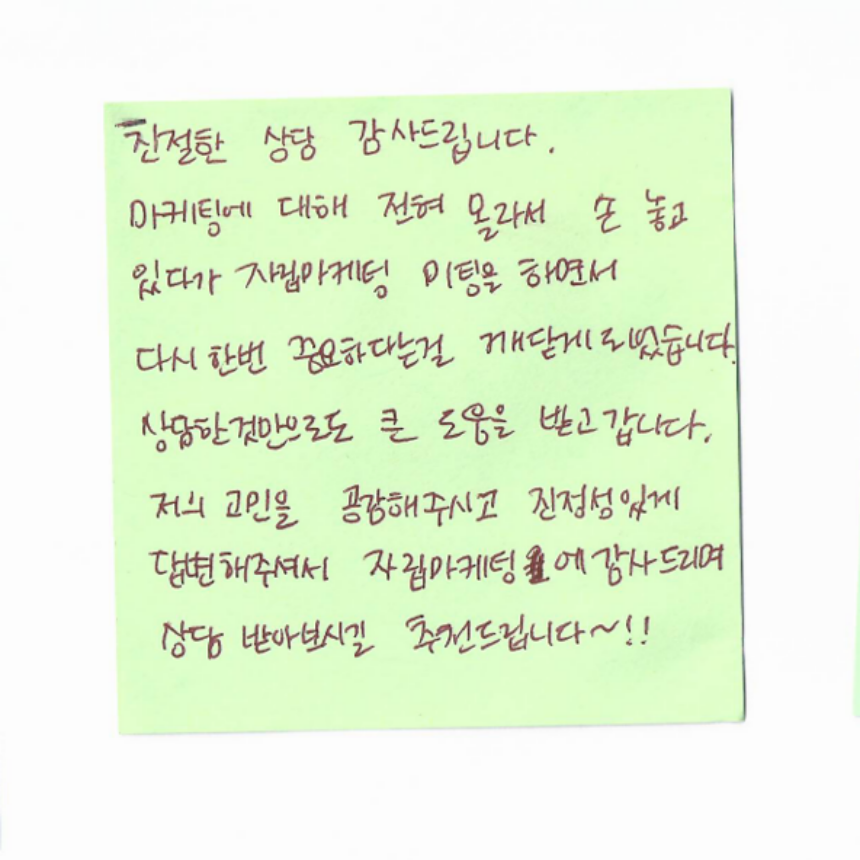 친절한 상담 감사드립니다.
마케팅에 대해 전혀 몰라서 손 놓고
있다가 자립마케팅 미팅을 하면서
다시 한번 중요하다는걸 깨닫게 되었습니다.
상담한것만으로도 큰 도움을 받고 갑니다.
저의 고민을 공감해주시고 진정성있게
답변해주셔서 자립마케팅에 감사드리며
상담 받아보시길 추천드립니다~!!